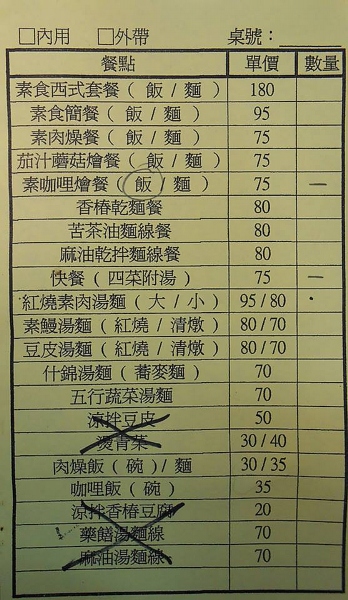 □內用 □外帶 桌號：
餐點 單價 數量
素食西式套餐（ 飯 / 麵 ） 180
素食簡餐（ 飯 / 麵 ） 95
素肉燥餐（ 飯 / 麵 ） 75
茄汁蘑菇燴餐（ 飯 / 麵 ） 75
素咖哩燴餐（ 飯 / 麵 ） 75 一
香椿乾麵餐 80
苦茶油麵線餐 80
麻油乾拌麵線餐 80
快餐（ 四菜附湯 ） 75 一
紅燒素肉湯麵（ 大 / 小 ） 95 / 80
素鰻湯麵（ 紅燒 / 清燉 ） 80 / 70
豆皮湯麵（ 紅燒 / 清燉 ） 80 / 70
什錦湯麵（ 蕎麥麵 ） 70
五行蔬菜湯麵 70
涼拌豆皮 50
燙青菜 30 / 40
肉燥飯（ 碗 ）/ 麵 30 / 35
咖哩飯（ 碗 ） 35
涼拌香椿豆腐 20
藥饍湯麵線 70
麻油湯麵線 70